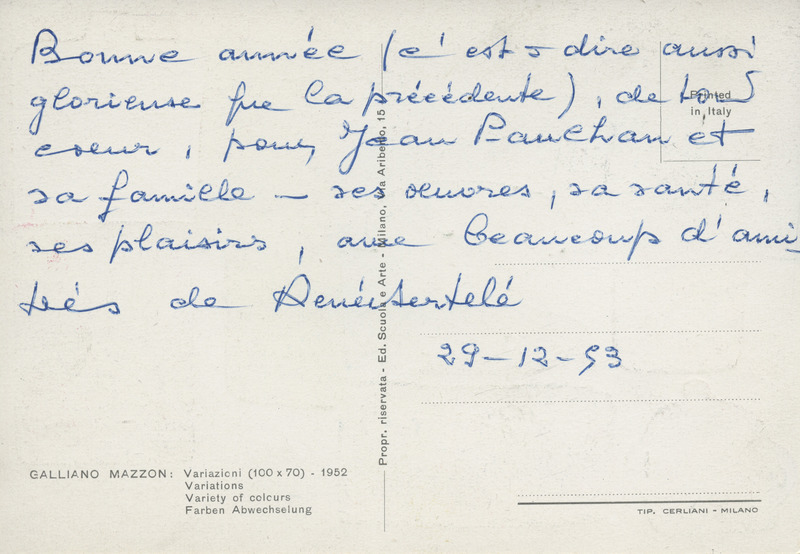 Bonne année (c'est à dire aussi
glorieuse que la précédente), de tout
coeur, pour Jean Paulhan et
sa famille — ses oeuvres, sa santé,
ses plaisirs, avec beaucoup d'ami-
tiés de René Bertelé
29-12-53
Printed
in Italy
Propr. riservata - Ed. Scuola e Arte - Milano, Via Ariberto, 15
GALLIANO MAZZON: Variazioni (100 x 70) - 1952
Variations
Variety of colours
Farben Abwechselung
TIP. CERLIANI - MILANO